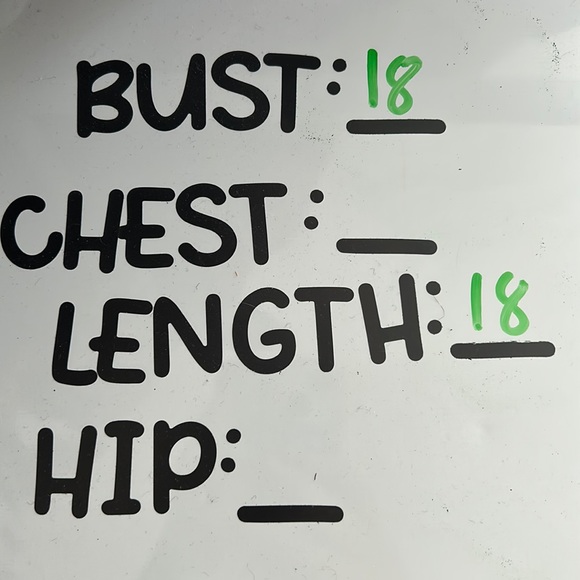 BUST: 18
CHEST: _
LENGTH: 18
HIP: _